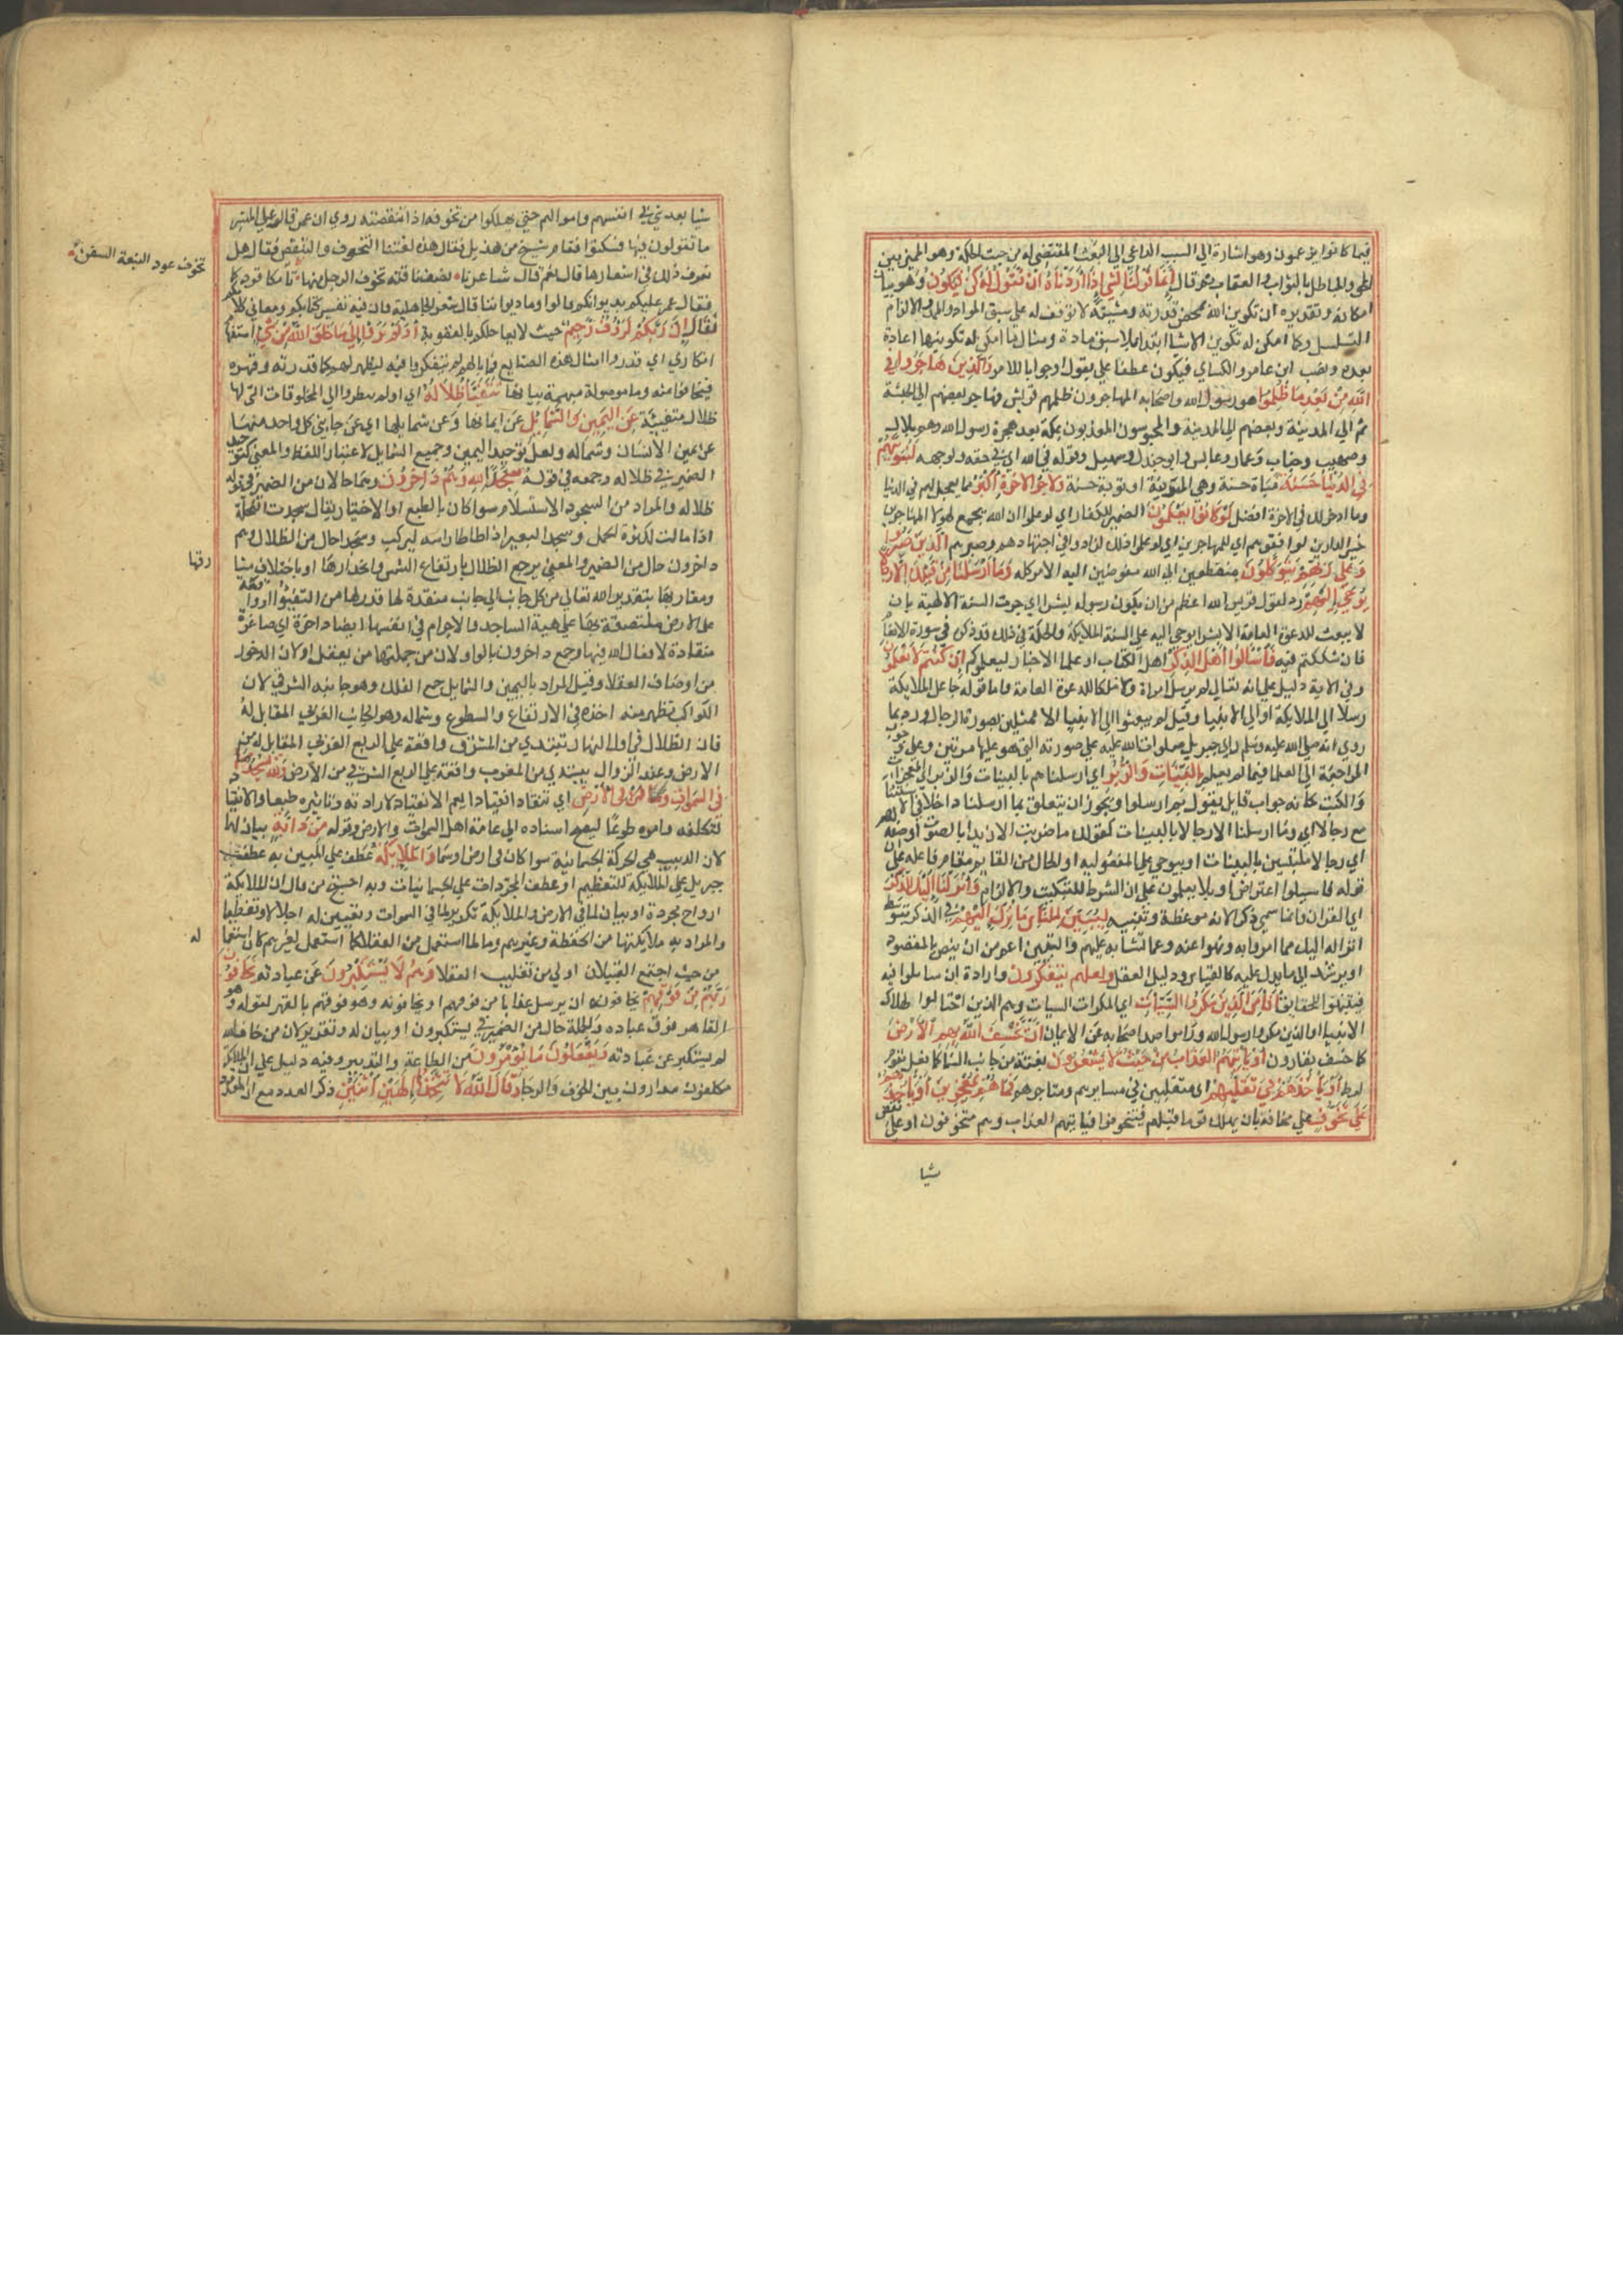 فيما كانوا يزعمون وهو اشارة الي السبب الداعي الي البعث المقتضي له من حيث الحكمة وهو الميز بين
الحق والباطل بالثواب والعقاب ثم قال إِنَّمَا قَوْلُنَا لِشَيْءٍ إِذَا أَرَدْنَاهُ أَنْ نَقُولَ لَهُ كُنْ فَيَكُونُ وهو بيان
امكانه وتقديره ان تكوين الله بمحض قدرته ومشيته لا توقف له علي سبق المواد والمدد والا لزم
التسلسل وكما امكن له تكوين الاشيا ابتدا بلا سبق مادة ومثال امكن له تكوينها اعادة
بعده ونصب ابن عامر والكساي فيكون عطفا علي يقول او جوابا للامر وَالَّذِينَ هَاجَرُوا فِي
اللَّهِ مِنْ بَعْدِ مَا ظُلِمُوا هو رسول الله واصحابه المهاجرون ظلمهم قريش فهاجر بعضهم الي الحبشة
ثم الي المدينة وبعضهم الي المدينة والمحبوسون المعذبون بمكة بعد هجرة رسول الله وهم بلال
وصهيب وخباب وعمار وعابس وابو جندل وسهيل وقوله في الله اي في حقه ولوجهه لَنُبَوِّئَنَّهُمْ
فِي الدُّنْيَا حَسَنَةً مباة حسنة وهي المدينة او تبوية حسنة وَلَأَجْرُ الْآخِرَةِ أَكْبَرُ مما يعجل لهم في الدنيا
وما ادخر لك في الاخرة افضل لَوْ كَانُوا يَعْلَمُونَ الضمير للكفار اي لو علموا ان الله يجمع لهولا المهاجرين
خير الدارين لوافقوهم اي للمهاجرين اي لو علموا ذلك لزادوا في اجتهادهم وصبرهم الَّذِينَ صَبَرُوا
وَعَلَى رَبِّهِمْ يَتَوَكَّلُونَ منقطعين الي الله مفوضين اليه الامر كله وَمَا أَرْسَلْنَا مِنْ قَبْلِكَ إِلَّا رِجَالًا
يُوحَى إِلَيْهِمْ رد لقول قريش الله اعظم من ان يكون رسوله بشرا اي جرت السنة الالهية بان
لا يبعث للدعوة العامة الا بشرا يوحي اليه علي السنة الملايكة والحكمة في ذلك قد ذكرت في سورة الانعام
فان شككتم فيه فَاسْأَلُوا أَهْلَ الذِّكْرِ اهل الكتاب او علما الاخبار ليعلموكم إِنْ كُنْتُمْ لَا تَعْلَمُونَ
وفي الاية دليل علي انه تعالي لم يرسل امراة ولا ملكا للدعوة العامة واما قوله جاعل الملايكة
رسلا الي الملايكة او الي الانبيا وقيل لم يبعثوا الي الانبيا الا ممثلين بصورة الرجال ورد بما
روي انه صلي الله عليه وسلم راي جبريل صلوات الله عليه علي صورته التي هو عليها مرتين وعلي وجوب
المراجعة الي العلما فيما لم يعلم بِالْبَيِّنَاتِ وَالزُّبُرِ اي ارسلناهم بالبينات والزبر اي المعجزات
والكتب كانه جواب قايل يقول بم ارسلوا ويجوز ان يتعلق بما ارسلنا داخلا في الاستثنا
مع رجالا اي وما ارسلنا الا رجالا بالبينات كقولك ما ضربت الا زيدا بالصوت او صفة لهم
اي رجالا ملتبسين بالبينات او بيوحي علي المفعولية او الحال من القايم مقام فاعله علي ان
قوله فاسيلوا اعتراض او بلا يعلمون علي ان الشرط للتبكيت والالزام وَأَنْزَلْنَا إِلَيْكَ الذِّكْرَ
اي القران وانما سمي ذكرا لانه موعظة وتنبيه لِتُبَيِّنَ لِلنَّاسِ مَا نُزِّلَ إِلَيْهِمْ في الذكر بتوسط
انزاله اليك مما امروا به ونهوا عنه وعما تشابه عليهم والتبيين اعم من ان ينص بالمقصود
او يرشد الي ما يدل عليه كالقياس ودليل العقل وَلَعَلَّهُمْ يَتَفَكَّرُونَ وارادة ان يتاملوا فيه
فيتنبهوا للحقايق أَفَأَمِنَ الَّذِينَ مَكَرُوا السَّيِّئَاتِ اي المكرات السيات وهم الذين احتالوا لهلاك
الانبيا او الذين مكروا رسول الله وراموا صد اصحابه عن الايمان أَنْ يَخْسِفَ اللَّهُ بِهِمُ الْأَرْضَ
كما خسف بقارون أَوْ يَأْتِيَهُمُ الْعَذَابُ مِنْ حَيْثُ لَا يَشْعُرُونَ بغتة من جانب السما كما فعل بقوم
لوط أَوْ يَأْخُذَهُمْ فِي تَقَلُّبِهِمْ اي متقلبين في مسايرهم ومتاجرهم فَمَا هُمْ بِمُعْجِزِينَ أَوْ يَأْخُذَهُمْ
عَلَى تَخَوُّفٍ علي مخافة بان يهلك قوما قبلهم فيتخوفوا فياتيهم العذاب وهم متخوفون او علي تنقص
شيا
شيا بعد شي في انفسهم واموالهم حتي يهلكوا من تخوفه اذا تنقصته روي ان عمر قال علي المنبر
ما تقولون فيها فسكتوا فقام شيخ من هذيل فقال هذه لغتنا التخوف والتنقص فقال هل
تعرف ذلك في اشعارها قال نعم قال شاعرنا يصف ناقته تخوف الرحل منها تامكا قردا كما
تخوف عود النبعة السفن
فقال عمر عليكم بديوانكم قالوا وما ديواننا قال شعر الجاهلية فان فيه تفسير كتابكم ومعاني كلامكم
فَإِنَّ رَبَّكُمْ لَرَءُوفٌ رَحِيمٌ حيث لا يعاجلكم بالعقوبة أَوَلَمْ يَرَوْا إِلَى مَا خَلَقَ اللَّهُ مِنْ شَيْءٍ استفهام
انكاري اي قد راوا امثال هذه الصنايع فما بالهم لم يتفكروا فيه ليظهر لهم كمال قدرته وقهره
فيخافوا منه وما موصولة مبهمة بيانها يَتَفَيَّأُ ظِلَالُهُ اي اولم ينظروا الي المخلوقات التي لها
ظلال متفيئة عَنِ الْيَمِينِ وَالشَّمَائِلِ عن ايمانها وعن شمايلها اي عن جانبي كل واحد منها
عن يمين الانسان وشماله ولعل توحيد اليمين وجميع الشمايل لاعتبار اللفظ والمعني كتوحيد
الضمير في ظلاله وجمعه في قوله سُجَّدًا لِلَّهِ وَهُمْ دَاخِرُونَ وهما حالان من الضمير في قوله
ظلاله والمراد من السجود الاستسلام سوا كان بالطبع او الاختيار يقال سجدت النخلة
اذا مالت لكثرة الحمل وسجد البعير اذا طاطا راسه ليركب وسجدا حال من الظلال وهم
داخرون حال من الضمير والمعني يرجع الظلال بارتفاع الشمس وانحدارها او باختلاف مشا
رقها
ومغاربها بتقدير الله تعالي من كل جانب الي جانب منقدة لها قدر لها من التفيئو او واقعة
علي الارض ملتصقة بها علي هية الساجد والاجرام في انفسها ايضا داخرة اي صاغرة
منقادة لافعال الله فيها وجمع داخرون بالواو لان من جملتها من يعقل او لان الدخور
من اوصاف العقلا وقيل المراد باليمين والشمايل جمع الفلك وهو جانبه الشرقي لان
الكواكب تظهر منه اخذه في الارتفاع والسطوع وشماله وهو الجانب الغربي المقابل له
فان الظلال في اول النهار تبتدي من المشرق واقعة علي الربع الغربي المقابل له من
الارض وعند الزوال يبتدي من المغرب واقعة علي الربع الشرقي من الارض وَلِلَّهِ يَسْجُدُ مَا
فِي السَّمَاوَاتِ وَمَا فِي الْأَرْضِ اي تنقاد انقيادا يعم الانقياد لارادته وتاثيره طبعا والانقياد
لتكلفه وامره طوعا ليصح اسناده الي عامة اهل السموات والارض وقوله مِنْ دَابَّةٍ بيان لهما
لان الدبيب هي الحركة الجسمانية سوا كان في ارض او سما وَالْمَلَائِكَةُ عطف علي المبين به عطف
جبريل علي الملايكة للتعظيم او عطف المجردات علي الجسمانيات وبه احتج من قال ان الملايكة
ارواح مجردة او بيان لما في الارض والملايكة تكرير لما في السموات وتعيين له اجلالا وتعظيما
والمراد به ملايكتها من الحفظة وغيرهم وما لما استعمل من العقلا كما استعمل لغيرهم كان استعما
له
من حيث اجتمع القبيلان اولي من تغليب العقلا وَهُمْ لَا يَسْتَكْبِرُونَ عن عبادته يَخَافُونَ
رَبَّهُمْ مِنْ فَوْقِهِمْ يخافونه ان يرسل عذابا من فوقهم او يخافونه وهو فوقهم بالقهر لقوله وهو
القاهر فوق عباده والجملة حال من الضمير في يستكبرون او بيان له وتقرير لان من خاف الله
لم يستكبر عن عبادته وَيَفْعَلُونَ مَا يُؤْمَرُونَ من الطاعة والتدبير وفيه دليل علي ان الملايكة
مكلفون مدارون بين الخوف والرجا وَقَالَ اللَّهُ لَا تَتَّخِذُوا إِلَهَيْنِ اثْنَيْنِ ذكر العدد مع ان المعدود